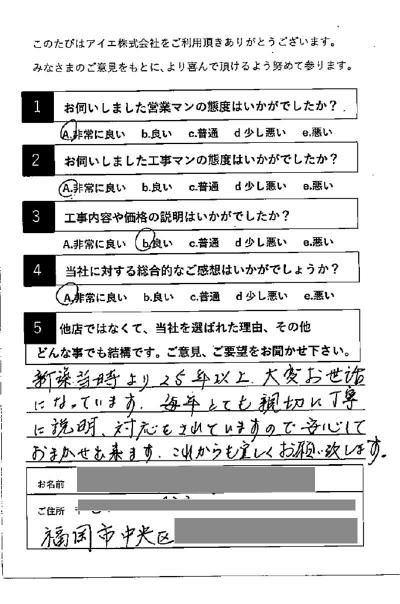 このたびはアイエ株式会社をご利用頂きありがとうございます。
みなさまのご意見をもとに、より喜んで頂けるよう努めて参ります。
1 お伺いしました営業マンの態度はいかがでしたか?
A.非常に良い b.良い c.普通 d少し悪い e.悪い
2 お伺いしました工事マンの態度はいかがでしたか?
A.非常に良い b.良い c.普通 d少し悪い e.悪い
3 工事内容や価格の説明はいかがでしたか?
A.非常に良い b.良い c.普通 d少し悪い e.悪い
4 当社に対する総合的なご感想はいかがでしょうか?
A.非常に良い b.良い c.普通 d少し悪い e.悪い
5 他店ではなくて、当社を選ばれた理由、その他
どんな事でも結構です。ご意見、ご要望をお聞かせ下さい。
新築当時より25年以上、大変お世話
になっています。毎年とても親切に丁寧
に説明、対応をされていますので安心して
おまかせ出来ます。これからも宜しくお願い致します。
お名前
ご住所
福岡市中央区